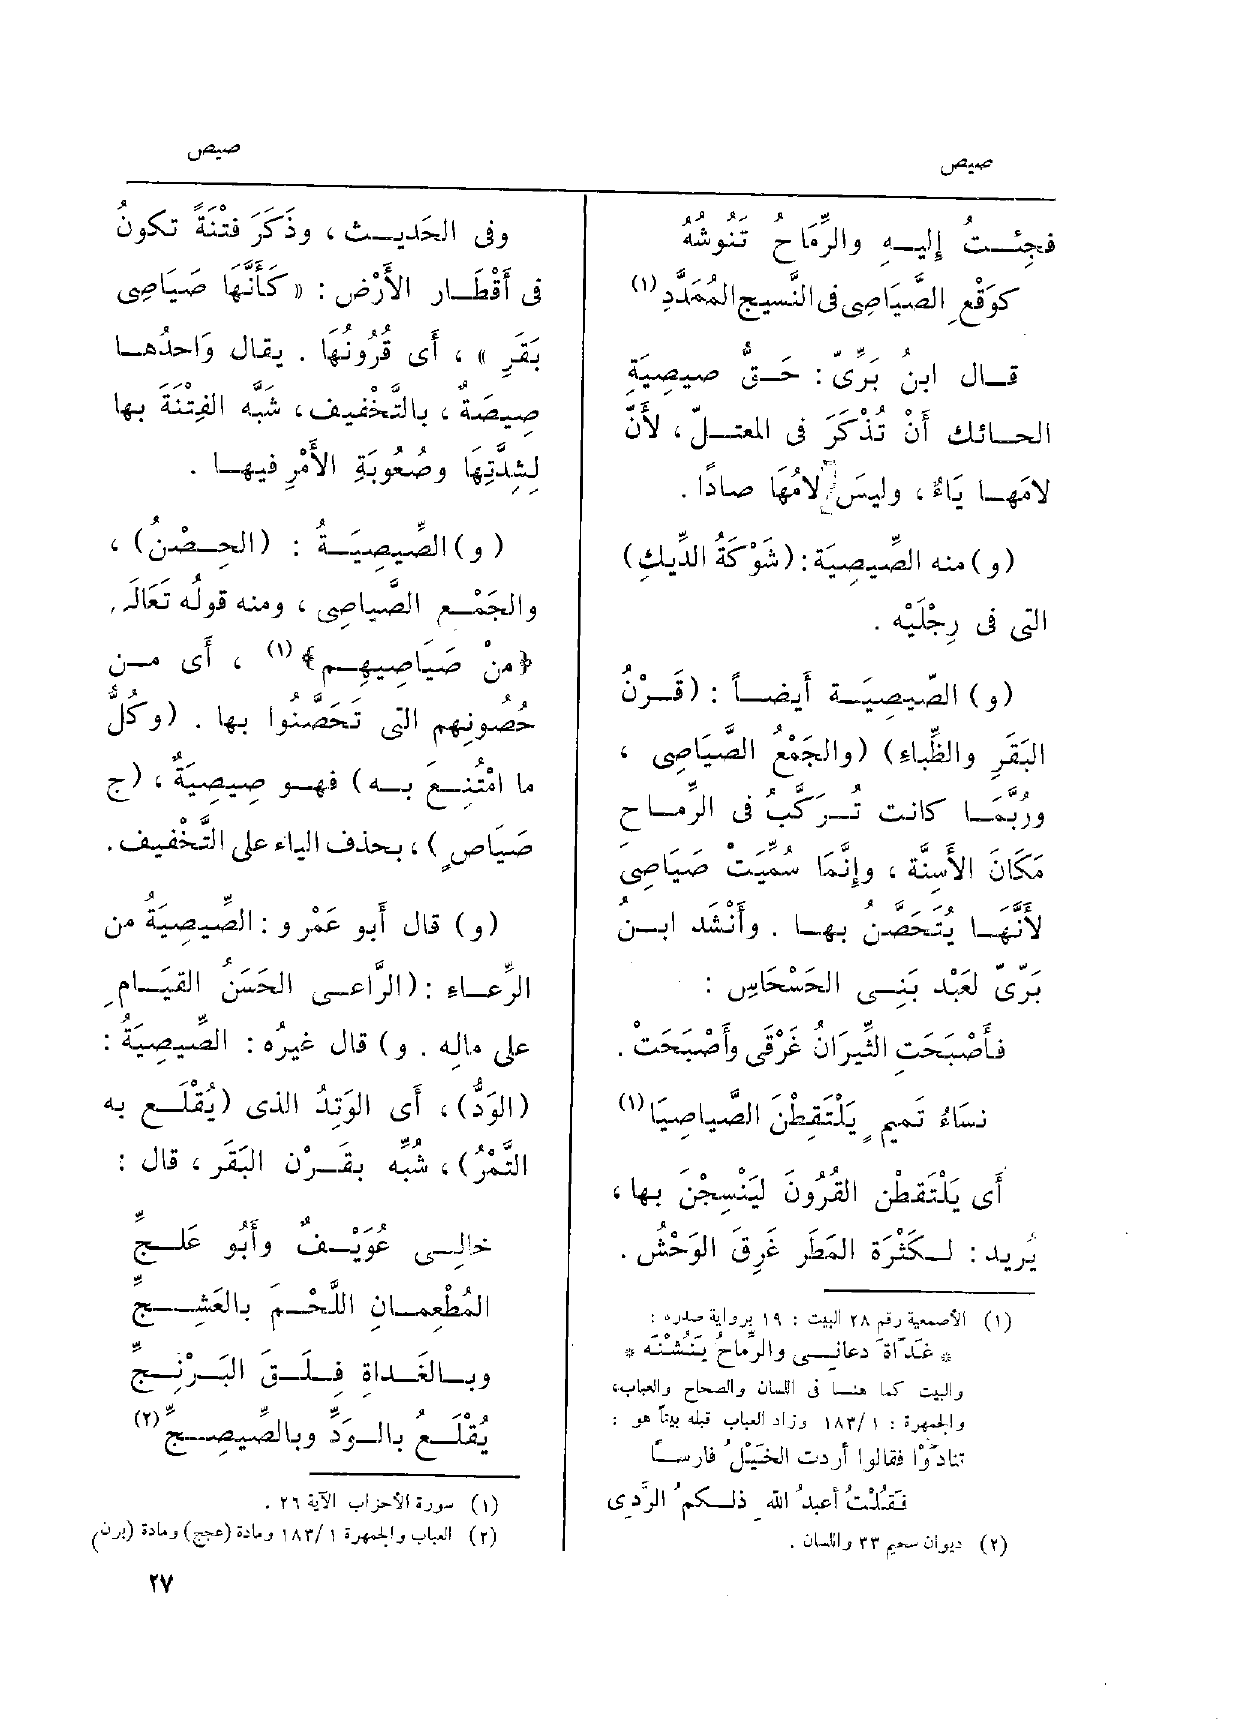 صيص
صيص
فجِئْـتُ إليـهِ والرِّمَاحُ تَنُوشُهُ
كوَقْعِ الصَّيَاصِى فى النَّسيجِ المُمَدَّدِ (١)
قـال ابنُ بَرِّىّ : حَـقُّ صِيصِيَةِ
الحـائك أَنْ تُذْكَرَ فى المعتـلّ ، لأَنَّ
لامَهـا يَاءٌ ، وليسَ لامُهَا صادًا .
(و) منه الصِّيصِيَة : (شَوْكَةُ الدِّيكِ)
التى فى رِجْلَيْه .
(و) الصِّيصِيَـة أَيضـاً : (قَـرْنُ
البَقَرِ والظِّباء) (والجَمْعُ الصَّيَاصِى ،
ورُبَّمَـا كانت تُـرَكَّبُ فى الرِّمـاح
مَكَانَ الأَسِنَّة ، وإِنَّمَا سُمِّيَت صَيَاصِىَ
لأَنَّهَـا يُتَحَصَّن بهـا . وأَنْشَد ابـنُ
بَرِّىّ لعَبْد بَنِـى الحَسْحَاسِ :
فأَصْبَحَتِ الثِّيرَانُ غَرْقَى وأَصْبَحَتْ .
نسَاءُ تَميمٍ يَلْتَقِطْنَ الصَّياصِيَا (١)
أَى يَلْتَقطْن القُرُونَ لِيَنْسِجْنَ بها ،
يُريد : لـكَثْرَة المَطَر غَرِقَ الوَحْشُ .
(١) الأصمعية رقم ٢٨ البيت : ١٩ برواية صدره :
* غَدَاةَ دعانِـى والرِّماحُ يَنُشْنَه *
والبيت كما هنـا فى اللسان والصحاح والعباب،
والجمهرة : ١ /١٨٣ وزاد العباب قبله بيتاً هو :
تنادَوْا فقالوا أَردت الخَيْلُ فارسـاً
فَقُلْتُ أَعبدُ اللهِ ذلـكمُ الرَّدِى
(٢) ديوان سحيم ٣٣ واللسان .
وفى الحَديـث ، وذَكَرَ فتْنَةً تكونُ
فى أَقْطَـار الأَرْض : « كأَنَّهَا صَيَاصِى
بَقَرٍ » ، أَى قُرُونُهَا . يقال وَاحدُهـا
صِيصَةٌ ، بالتَّخْفيف ، شَبَّه الفتْنَةَ بها
لِشدَّتِهَا وصُعُوبَةِ الأَمْرِ فيهـا .
(و) الصِّيصِيَـةُ : (الحِـصْنُ) ،
والجَمْـع الصَّياصِى ، ومنه قولُه تَعَالَى
﴿منْ صَيَاصِيهِـم﴾ (١) ، أَى مـن
حُصُونِهِم التى تَحَصَّنُوا بها . (وكُلُّ
ما امْتُنِـعَ بـه) فهـو صِيصِيَةٌ ، (ج
صَيَاصٍ) ، بحذف الياء على التَّخْفيف .
(و) قال أَبو عَمْرو : الصِّيصِيَةُ من
الرِّعـاء : (الرَّاعـى الحَسَنُ القيَـامِ
على مالِه . و) قال غيرُه : الصِّيصِيَةُ :
(الوَدُّ) ، أَى الوَتِدُ الذى (يُقْلَـع به
التَّمْرُ) ، شُبِّه بقَـرْن البَقَر ، قال :
خالِـى عُوَيْـفٌ وأَبُو عَلـجِّ
المُطْعِمـانِ اللَّحْـمَ بالعَشِـجِّ
وبـالغَـداةِ فِـلَـقَ البَـرْنِـجِّ
يُقْلَـعُ بالـوَدِّ وبالصِّيصِـجِّ (٢)
(١) سورة الأحزاب الآية ٢٦ .
(٢) العباب والجمهرة ١ /١٨٣ ومادة (عجج) ومادة (برن)
٢٧